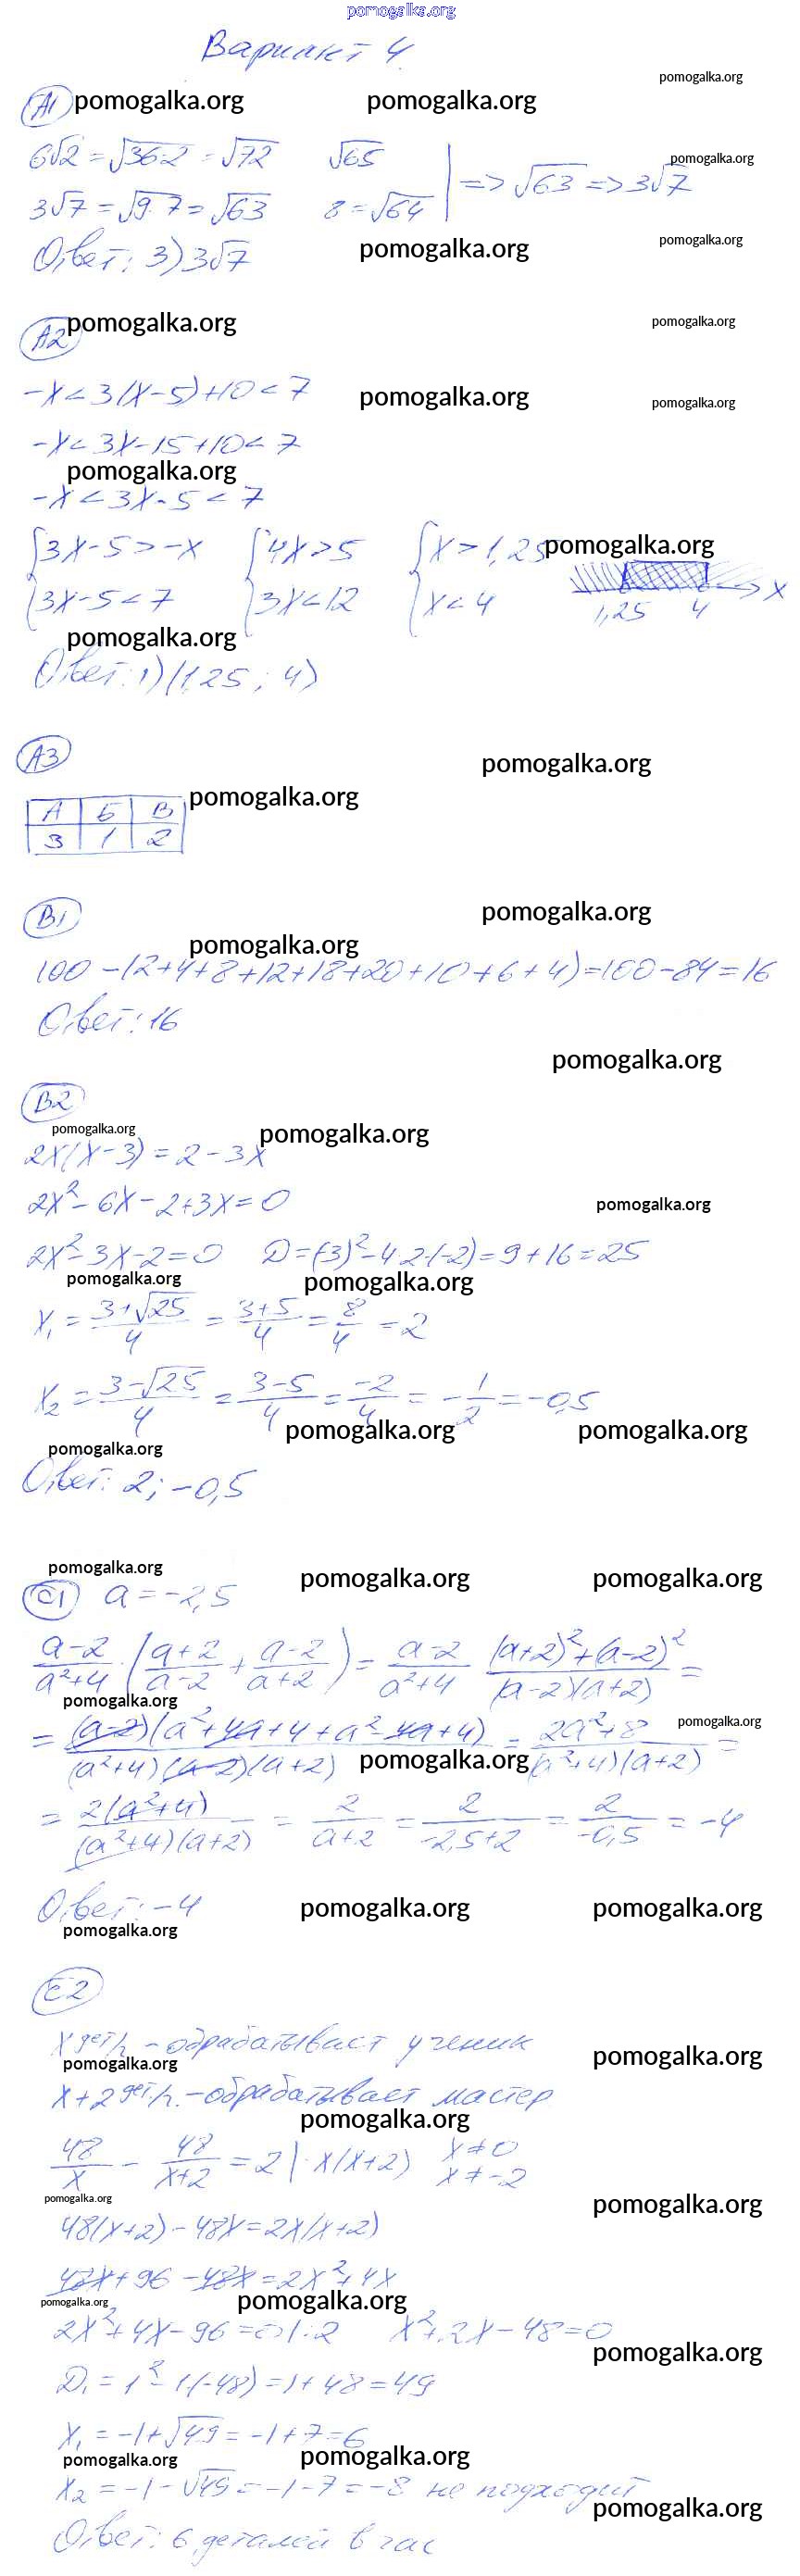 pomogalka.org
Вариант 4
pomogalka.org
А1 pomogalka.org pomogalka.org
6√2 = √36·2 = √72 √65
pomogalka.org
3√7 = √9·7 = √63 8 = √64 | => √63 => 3√7
Ответ: 3) 3√7
pomogalka.org pomogalka.org
А2 pomogalka.org pomogalka.org
-x < 3(x-5)+10 < 7
pomogalka.org pomogalka.org
-x < 3x-15+10 < 7
pomogalka.org
-x < 3x-5 < 7
{3x-5 > -x {4x > 5 {x > 1,25 pomogalka.org
{3x-5 < 7 {3x < 12 {x < 4 1,25 4 x
pomogalka.org
Ответ: 1) (1,25; 4)
А3 pomogalka.org
pomogalka.org
А Б В
3 1 2
В1 pomogalka.org
pomogalka.org
100-(2+4+8+12+18+20+10+6+4)=100-84=16
Ответ: 16
pomogalka.org
В2
pomogalka.org pomogalka.org
2x(x-3) = 2-3x
2x²-6x-2+3x=0 pomogalka.org
2x²-3x-2=0 D=(-3)²-4·2·(-2)=9+16=25
pomogalka.org pomogalka.org
x₁ = (3+√25)/4 = (3+5)/4 = 8/4 = 2
x₂ = (3-√25)/4 = (3-5)/4 = -2/4 = -1/2 = -0,5
pomogalka.org pomogalka.org
pomogalka.org
Ответ: 2; -0,5
pomogalka.org pomogalka.org pomogalka.org
С1 a = -2,5
(a-2)/(a²+4) · ((a+2)/(a-2) + (a-2)/(a+2)) = (a-2)/(a²+4) · ((a+2)²+(a-2)²)/((a-2)(a+2)) =
pomogalka.org pomogalka.org
= ((a-2)(a²+4a+4+a²-4a+4))/((a²+4)(a-2)(a+2)) = (2a²+8)/((a²+4)(a+2)) =
pomogalka.org
= 2(a²+4)/((a²+4)(a+2)) = 2/(a+2) = 2/(-2,5+2) = 2/(-0,5) = -4
Ответ: -4 pomogalka.org pomogalka.org
pomogalka.org
С2
x дет/ч - обрабатывает ученик
pomogalka.org pomogalka.org
x+2 дет/ч. - обрабатывает мастер
pomogalka.org
48/x - 48/(x+2) = 2 | · x(x+2) x ≠ 0 x ≠ -2
pomogalka.org pomogalka.org
48(x+2)-48x=2x(x+2)
48x+96-48x=2x²+4x
pomogalka.org pomogalka.org
2x²+4x-96=0 |:2 x²+2x-48=0
pomogalka.org
D₁ = 1²-1·(-48)=1+48=49
x₁ = -1+√49 = -1+7=6
pomogalka.org pomogalka.org
x₂ = -1-√49 = -1-7 = -8 не подходит
pomogalka.org
Ответ: 6 деталей в час